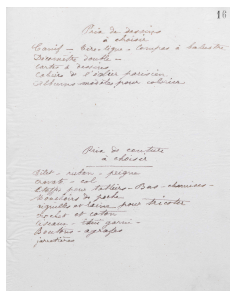 18
Prix de dessins
à choisir
Canif - tire-ligne - compas à balustre
Décamètre double -
Cartes à dessins
Cahier de l'écolier parisien
Albums modèles pour colorier
Prix de couture
à choisir
Filet - ruban - peigne
cravate - col
Etoffe pour tabliers - Bas - chemises -
Mouchoirs de poche
aiguilles et laine pour tricoter
Crochet et coton
Ciseaux - garni -
Boutons - agrafes
jarretières